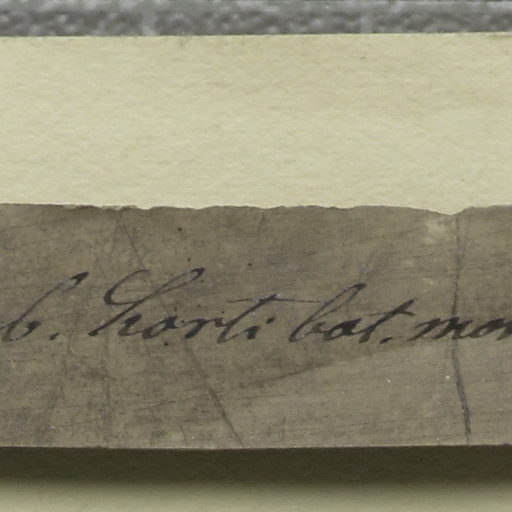 b. Horti bot. mon